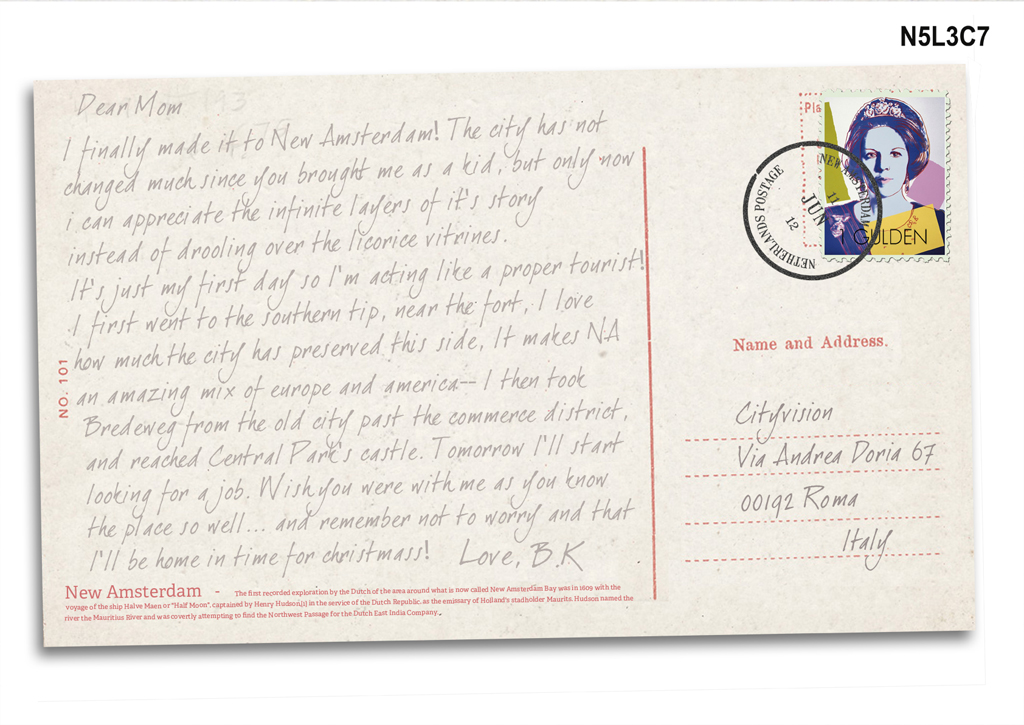 N5L3C7
Dear Mom
I finally made it to New Amsterdam! The city has not
changed much since you brought me as a kid, but only now
i can appreciate the infinite layers of it's story
instead of drooling over the licorice vitrines.
It's just my first day so I'm acting like a proper tourist!
I first went to the southern tip, near the fort, I love
how much the city has preserved this side, It makes NA
an amazing mix of europe and america-- I then took
Bredeweg from the old city past the commerce district,
and reached Central Park's castle. Tomorrow I'll start
looking for a job. Wish you were with me as you know
the place so well... and remember not to worry and that
I'll be home in time for christmass! Love, B.K
NO. 101
New Amsterdam - The first recorded exploration by the Dutch of the area around what is now called New Amsterdam Bay was in 1609 with the
voyage of the ship Halve Maen or "Half Moon", captained by Henry Hudson,[1] in the service of the Dutch Republic, as the emissary of Holland's stadholder Maurits. Hudson named the
river the Mauritius River and was covertly attempting to find the Northwest Passage for the Dutch East India Company.
Pla
NETHERLANDS POSTAGE
NEW AMSTERDAM
11
JUN
12
1 GULDEN
Name and Address.
Cityvision
Via Andrea Doria 67
00192 Roma
Italy